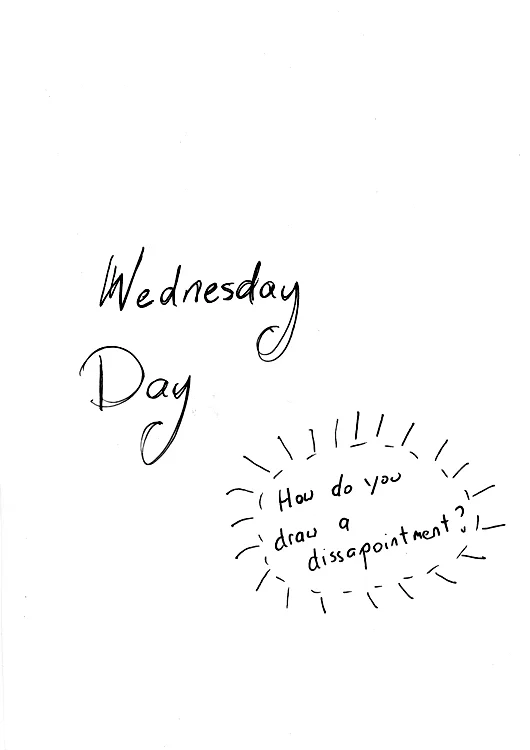 Wednesday
Day
How do you
draw a
dissapointment?